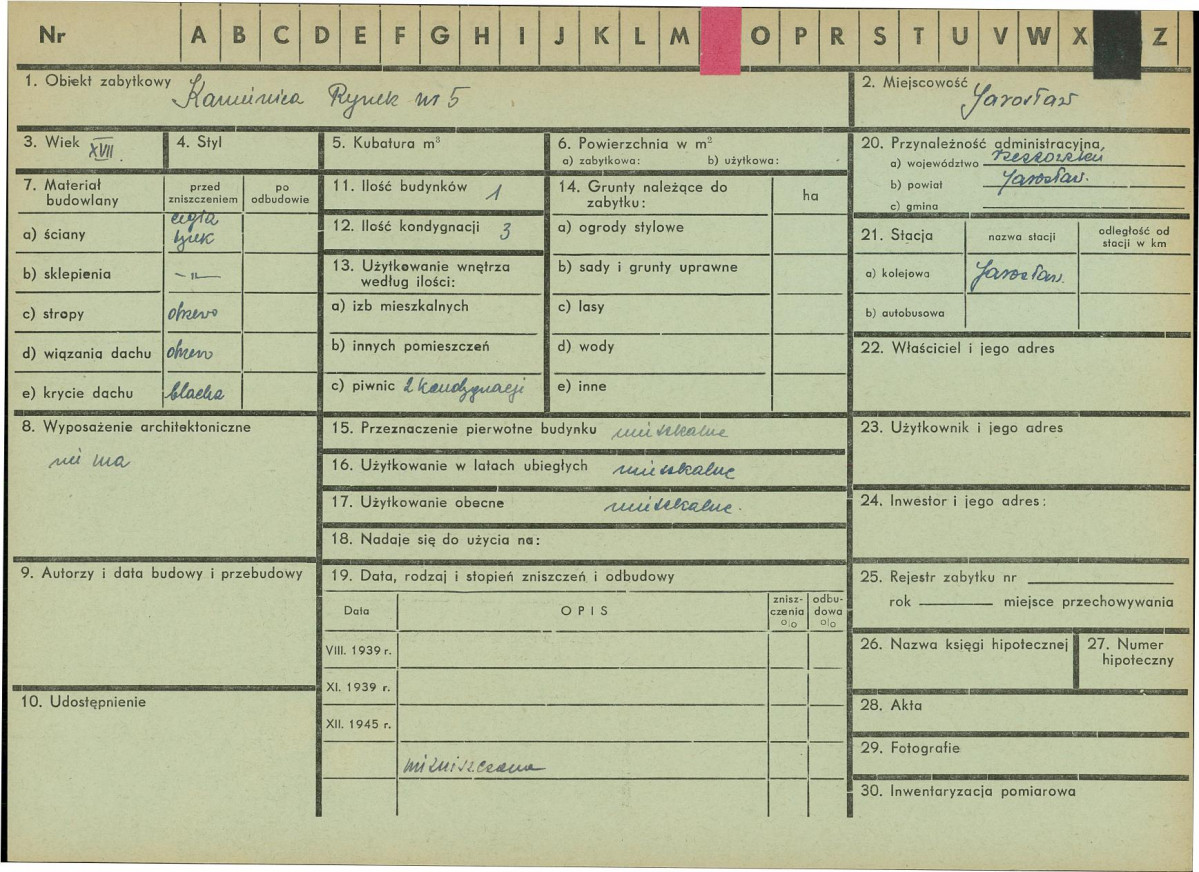 Nr A B C D E F G H I J K L M O P R S T U V W X Z
1. Obiekt zabytkowy Kamienica Rynek nr 5
2. Miejscowość Jarosław
3. Wiek XVII.
4. Styl
5. Kubatura m³
6. Powierzchnia w m²
a) zabytkowa: b) użytkowa:
7. Materiał budowlany
przed zniszczeniem
po odbudowie
a) ściany cegła tynk
b) sklepienia -"-
c) stropy drzewo
d) wiązania dachu drzewo
e) krycie dachu blacha
8. Wyposażenie architektoniczne
nie ma
9. Autorzy i data budowy i przebudowy
10. Udostępnienie
11. Ilość budynków 1
12. Ilość kondygnacji 3
13. Użytkowanie wnętrza
według ilości:
a) izb mieszkalnych
b) innych pomieszczeń
c) piwnic 2 kondygnacji
14. Grunty należące do
zabytku:
ha
a) ogrody stylowe
b) sady i grunty uprawne
c) lasy
d) wody
e) inne
15. Przeznaczenie pierwotne budynku mieszkalne
16. Użytkowanie w latach ubiegłych mieszkalne
17. Użytkowanie obecne mieszkalne.
18. Nadaje się do użycia na:
19. Data, rodzaj i stopień zniszczeń i odbudowy
Data
OPIS
znisz-
czenia
%
odbu-
dowa
%
VIII. 1939 r.
XI. 1939 r.
XII. 1945 r.
niezniszczona
20. Przynależność administracyjna,
a) województwo rzeszowskie
b) powiat Jarosław.
c) gmina
21. Stacja
nazwa stacji
odległość od
stacji w km
a) kolejowa Jarosław.
b) autobusowa
22. Właściciel i jego adres
23. Użytkownik i jego adres
24. Inwestor i jego adres:
25. Rejestr zabytku nr
rok miejsce przechowywania
26. Nazwa księgi hipotecznej
27. Numer
hipoteczny
28. Akta
29. Fotografie
30. Inwentaryzacja pomiarowa